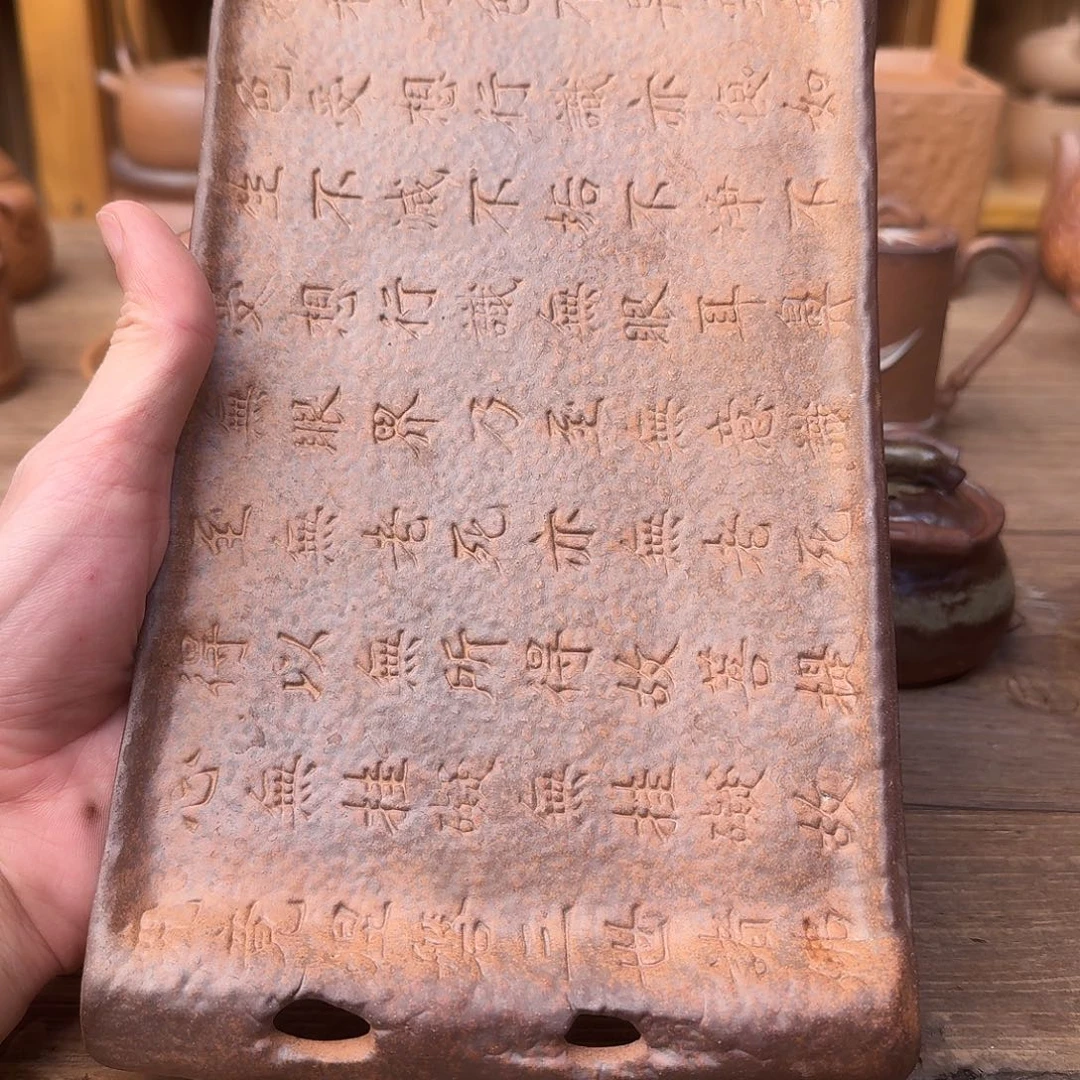 色受想行識亦復如
生不滅不垢不淨不
受想行識無眼耳鼻
無眼界乃至無意識
至無老死亦無老死
得以無所得故菩提
心無挂礙無挂礙故
究竟涅槃三世諸佛